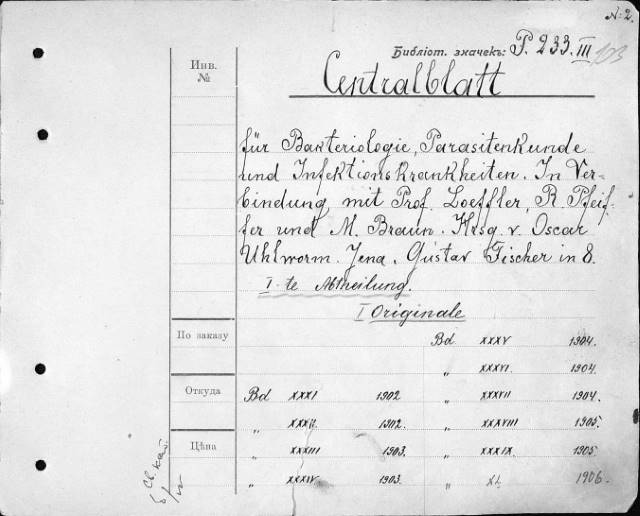 N: 2.
Библіот. значекъ: P. 233. III 103
Инв. №
Centralblatt
für Bakteriologie, Parasitenkunde
und Infektionskrankheiten. In Ver-
bindung mit Prof. Loeffler, R. Pfeif-
fer und M. Braun. Hrsg. v. Oscar
Uhlworm. Jena. Gustav Fischer in 8.
I-te Abtheilung.
I Originale
По заказу
Bd XXXV 1904.
„ XXXVI. 1904.
Откуда
Bd XXXI 1902 „ XXXVII 1904.
„ XXXII. 1902. „ XXXVIII 1905.
Цѣна
„ XXXIII 1903. „ XXXIX. 1905.
„ XXXIV. 1903. „ XL. 1906.